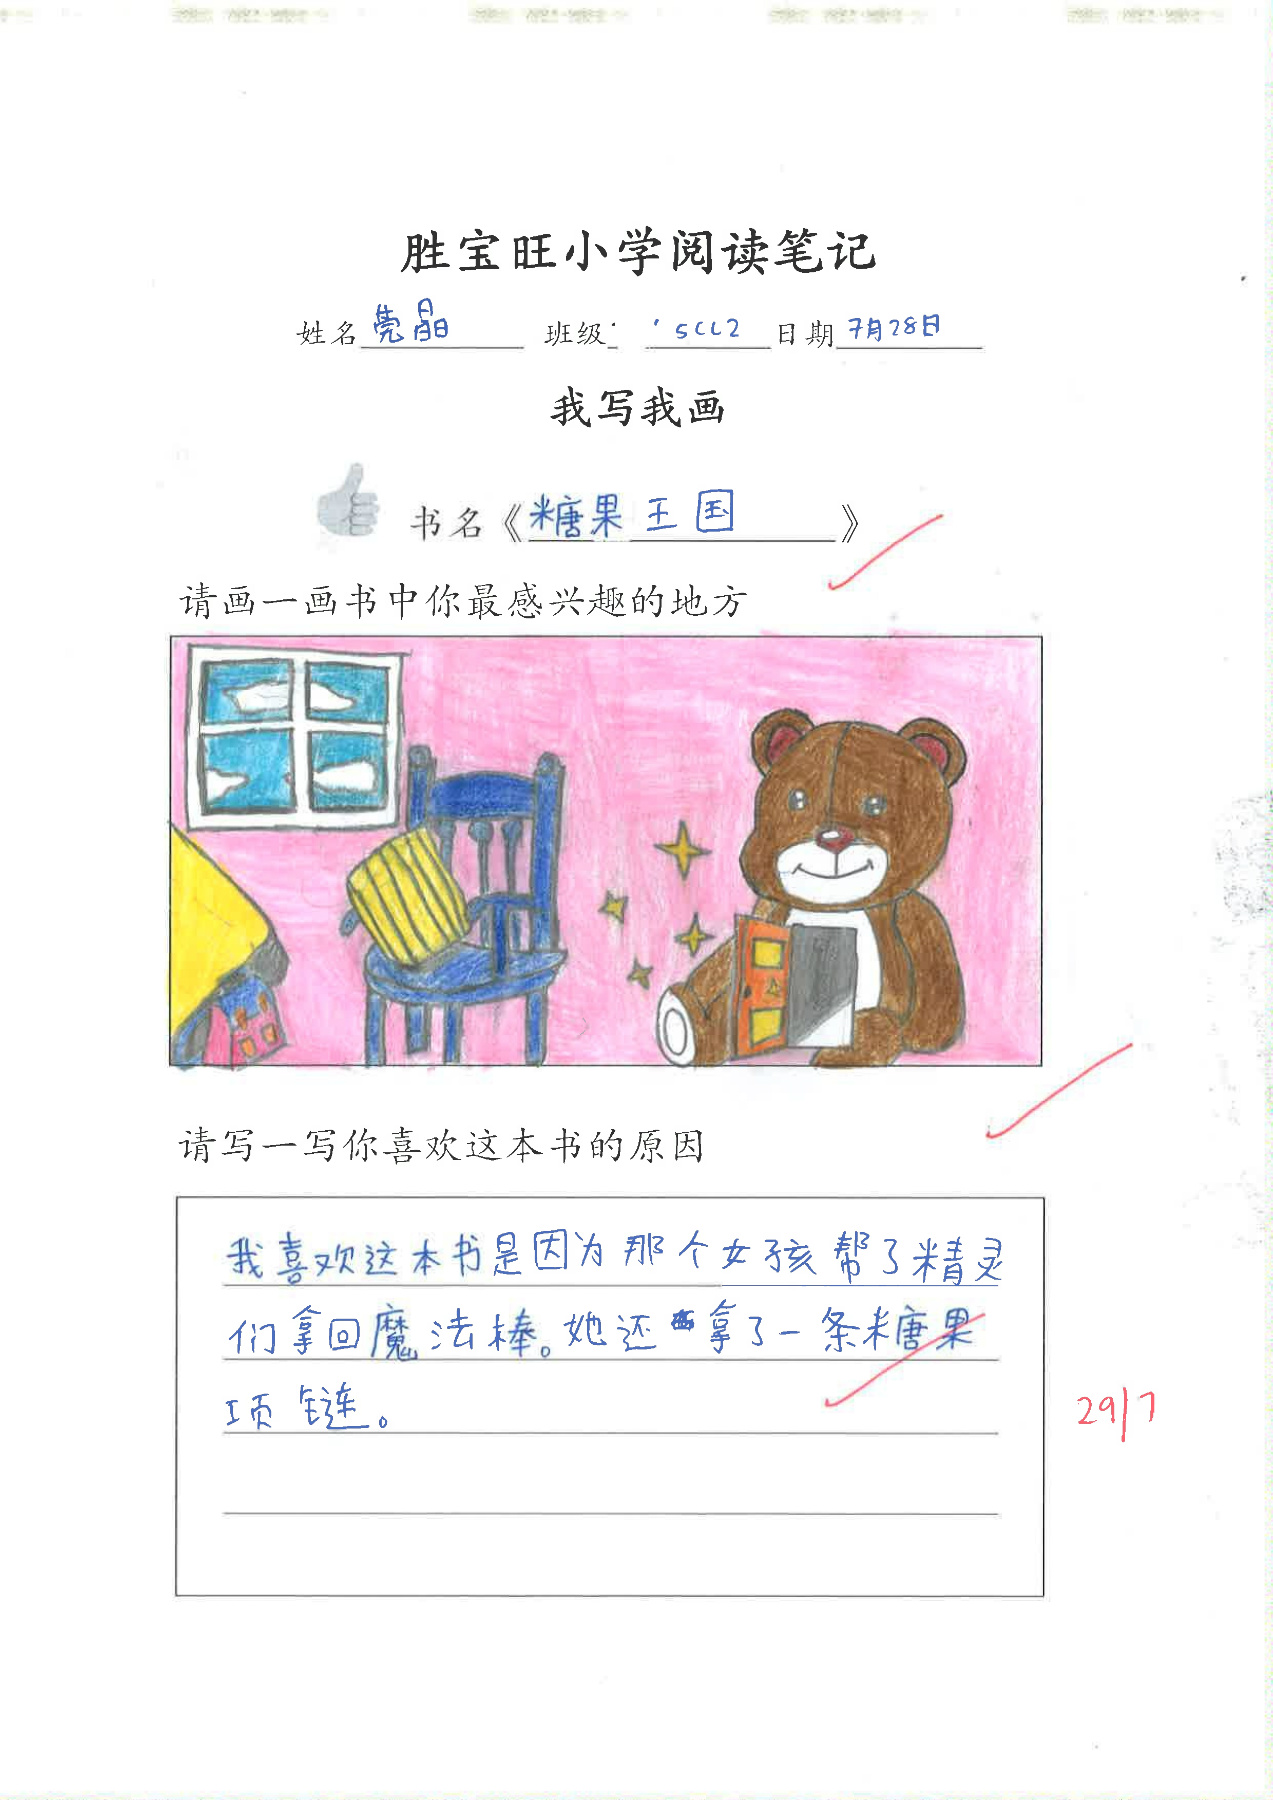 胜宝旺小学阅读笔记
姓名 莞晶 班级 5CL2 日期 7月28日
我写我画
书名《糖果王国》
请画一画书中你最感兴趣的地方
请写一写你喜欢这本书的原因
我喜欢这本书是因为那个女孩帮了精灵
们拿回魔法棒。她还拿了一条糖果
项链。
29/7